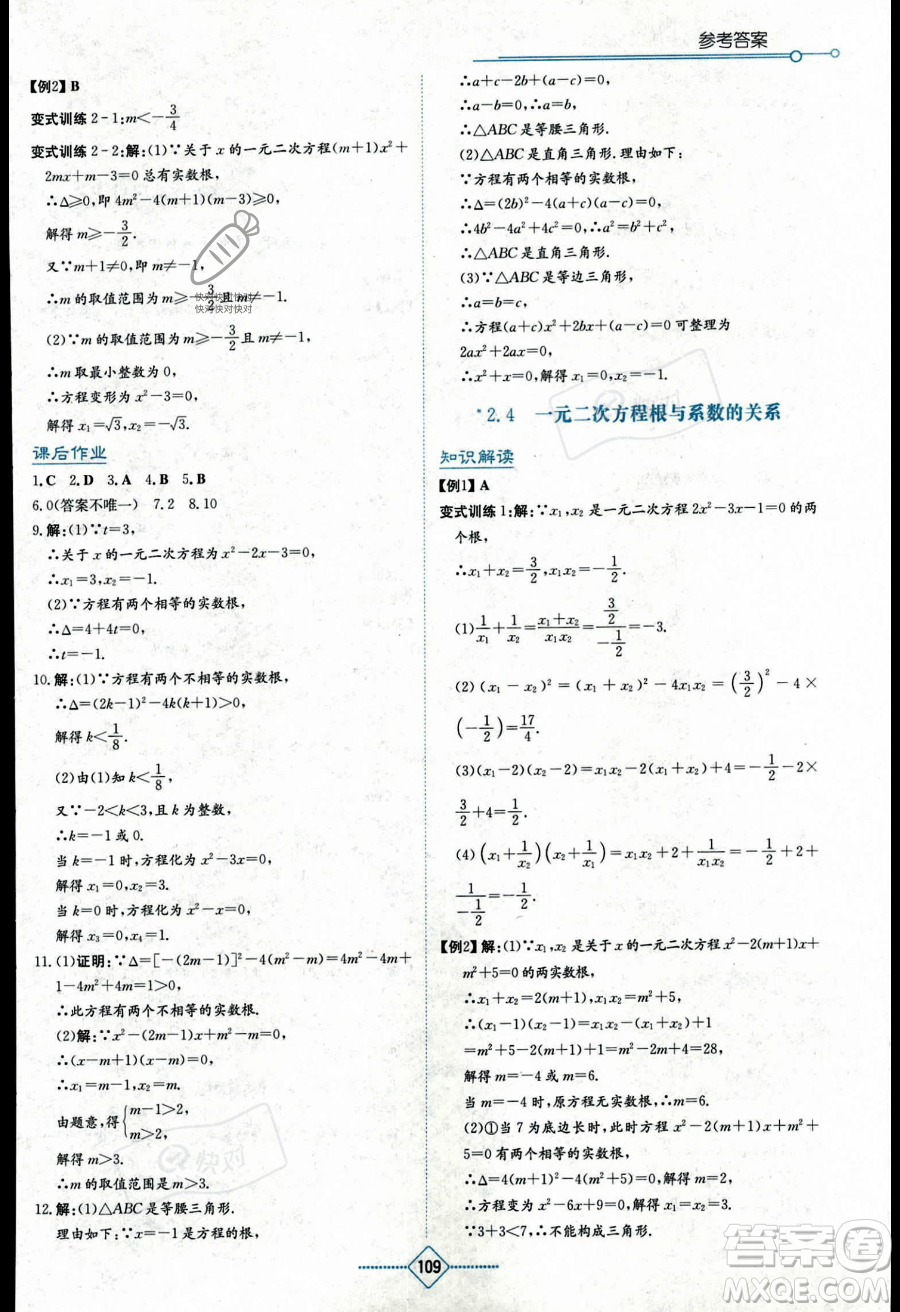 参考答案
【例2】B
变式训练2-1:m<-3/4
变式训练2-2:解:(1)∵关于x的一元二次方程(m+1)x²+
2mx+m-3=0总有实数根,
∴Δ≥0,即4m²-4(m+1)(m-3)≥0,
解得m≥-3/2.
又∵m+1≠0,即m≠-1,
∴m的取值范围为m≥-3/2且m≠-1.
快对快对快对
快对快对快对
(2)∵m的取值范围为m≥-3/2且m≠-1,
∴m取最小整数为0,
∴方程变形为x²-3=0,
解得x₁=√3,x₂=-√3.
课后作业
1.C 2.D 3.A 4.B 5.B
6.0(答案不唯一) 7.2 8.10
9.解:(1)∵t=3,
∴关于x的一元二次方程为x²-2x-3=0,
∴x₁=3,x₂=-1.
(2)∵方程有两个相等的实数根,
∴Δ=4+4t=0,
∴t=-1.
10.解:(1)∵方程有两个不相等的实数根,
∴Δ=(2k-1)²-4k(k+1)>0,
解得k<1/8.
(2)由(1)知k<1/8,
又∵-2<k<3,且k为整数,
∴k=-1或0.
当k=-1时,方程化为x²-3x=0,
解得x₁=0,x₂=3.
当k=0时,方程化为x²-x=0,
解得x₃=0,x₄=1.
11.(1)证明:∵Δ=[-(2m-1)]²-4(m²-m)=4m²+
1-4m-4m²+4m=1>0,
∴此方程有两个不相等的实数根.
(2)解:∵x²-(2m-1)x+m²-m=0,
∴(x-m+1)(x-m)=0,
∴x₁=m-1,x₂=m.
由题意,得{m-1>2,
m>2,
解得m>3.
∴m的取值范围是m>3.
快对
12.解:(1)△ABC是等腰三角形.
理由如下:∵x=-1是方程的根,
∴a+c-2b+2b+(a-c)=0,
∴a-b=0,∴a=b,
∴△ABC是等腰三角形.
(2)△ABC是直角三角形.理由如下:
∵方程有两个相等的实数根,
∴Δ=(2b)²-4(a+c)(a-c)=0,
∴4b²-4a²+4c²=0,∴a²=b²+c²,
∴△ABC是直角三角形.
(3)∵△ABC是等边三角形,
∴a=b=c,
∴方程(a+c)x²+2bx+(a-c)=0可整理为
2ax²+2ax=0,
∴x²+x=0,解得x₁=0,x₂=-1.
*2.4 一元二次方程根与系数的关系
知识解读
【例1】A
变式训练1:解:∵x₁,x₂是一元二次方程2x²-3x-1=0的两
个根,
∴x₁+x₂=3/2,x₁x₂=-1/2.
(1)1/x₁+1/x₂=(x₁+x₂)/(x₁x₂)=(3/2)/(-1/2)=-3.
(2)(x₁-x₂)²=(x₁+x₂)²-4x₁x₂=(3/2)²-4×
(-1/2)=17/4.
(3)(x₁-2)(x₂-2)=x₁x₂-2(x₁+x₂)+4=-1/2-2×
3/2+4=1/2.
(4)(x₁+1/x₂)(x₂+1/x₁)=x₁x₂+2+1/(x₁x₂)=-1/2+2+
1/(-1/2)=-1/2.
【例2】解:(1)∵x₁,x₂是关于x的一元二次方程x²-2(m+1)x+
m²+5=0的两实数根,
∴x₁+x₂=2(m+1),x₁x₂=m²+5,
∴(x₁-1)(x₂-1)=x₁x₂-(x₁+x₂)+1
=m²+5-2(m+1)+1=m²-2m+4=28,
解得m=-4或m=6.
当m=-4时,原方程无实数根,∴m=6.
(2)①当7为底边长时,此时方程x²-2(m+1)x+m²+
5=0有两个相等的实数根,
∴Δ=4(m+1)²-4(m²+5)=0,解得m=2,
∴方程变为x²-6x+9=0,解得x₁=x₂=3.
∵3+3<7,∴不能构成三角形.
109
答案圈
MXQE.COM